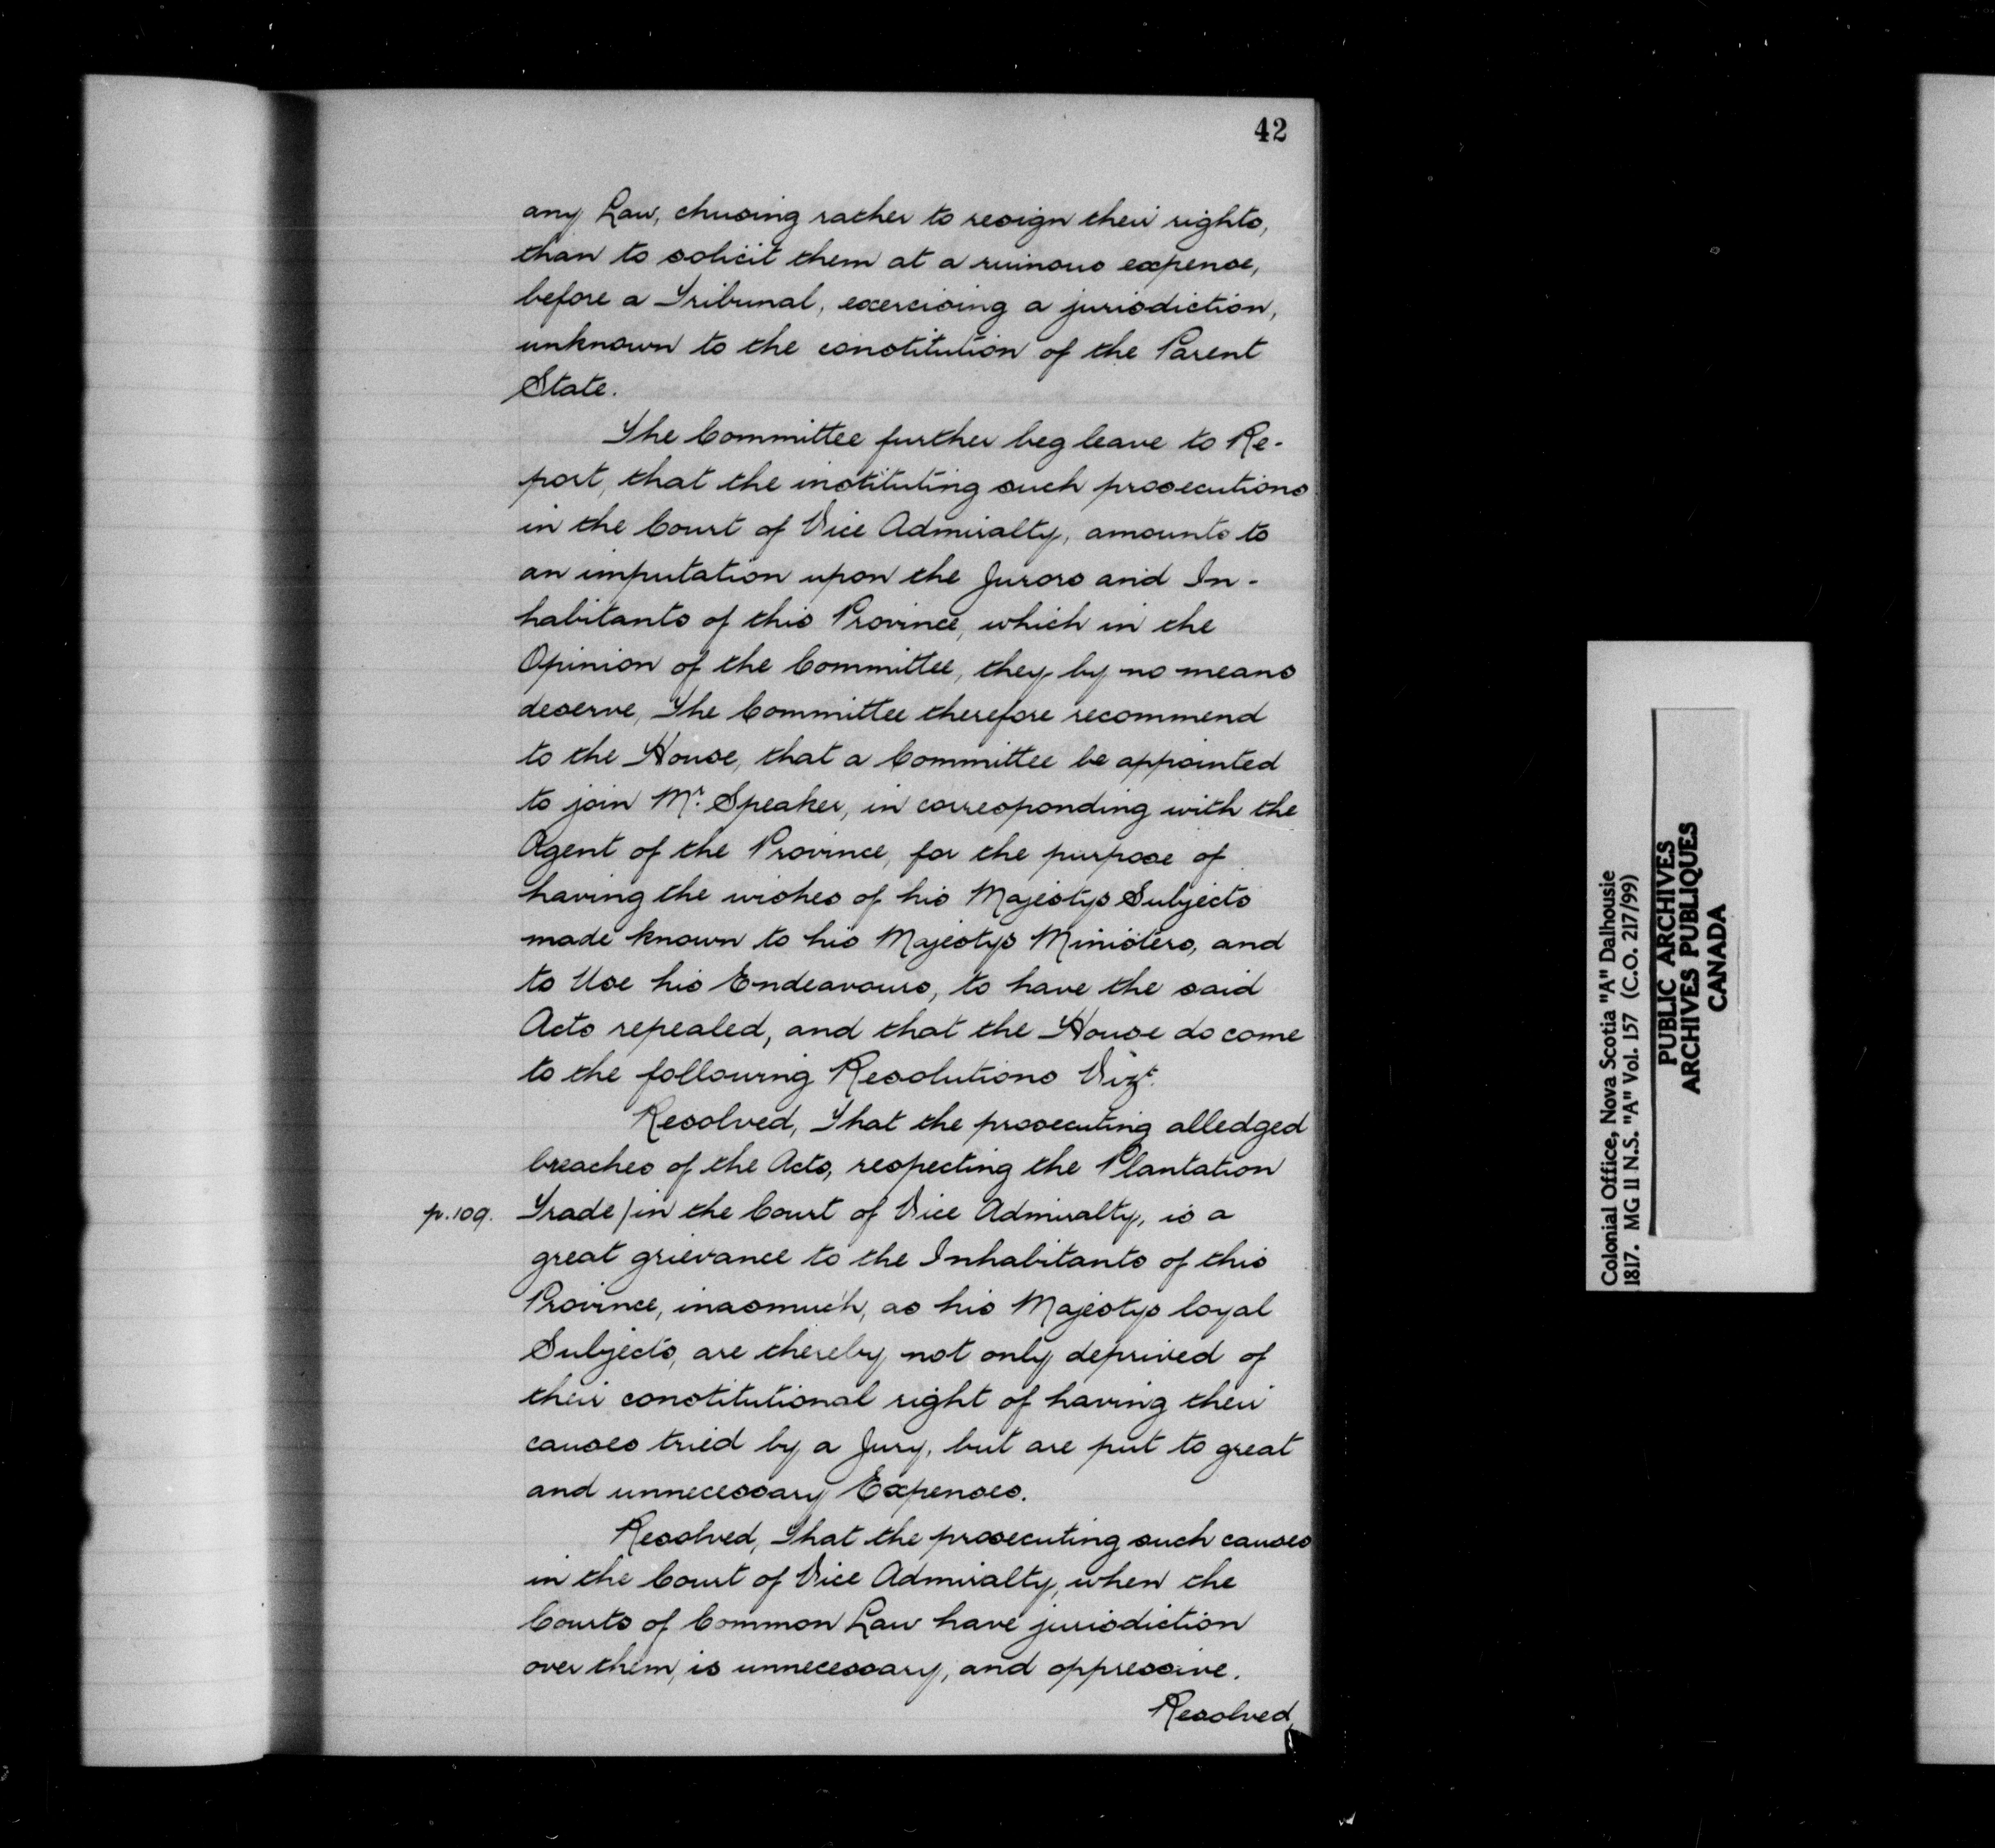 42
any Law, chusing rather to resign their rights,
than to solicit them at a ruinous expense,
before a Tribunal, exercising a jurisdiction,
unknown to the constitution of the Parent
State.
The Committee further beg leave to Re-
port, that the instituting such prosecutions
in the Court of Vice Admiralty, amounts to
an imputation upon the Jurors and In-
habitants of this Province, which in the
Opinion of the Committee, they by no means
deserve, The Committee therefore recommend
to the House, that a Committee be appointed
to join Mr. Speaker, in corresponding with the
Agent of the Province, for the purpose of
having the wishes of his Majestys Subjects
made known to his Majestys Ministers, and
to Use his Endeavours, to have the said
Acts repealed, and that the House do come
to the following Resolutions Vizt.
Resolved, That the prosecuting alledged
breaches of the Acts, respecting the Plantation
p.109. Trade/in the Court of Vice Admiralty, is a
great grievance to the Inhabitants of this
Province, inasmuch, as his Majestys loyal
Subjects, are thereby not only deprived of
their constitutional right of having their
causes tried by a Jury, but are put to great
and unnecessary Expenses.
Resolved, That the prosecuting such causes
in the Court of Vice Admiralty, when the
Courts of Common Law have jurisdiction
over them, is unnecessary, and oppressive.
Resolved,
Colonial Office, Nova Scotia "A" Dalhousie
1817. MG 11 N.S. "A" Vol. 157 (C.O. 217/99)
PUBLIC ARCHIVES
ARCHIVES PUBLIQUES
CANADA